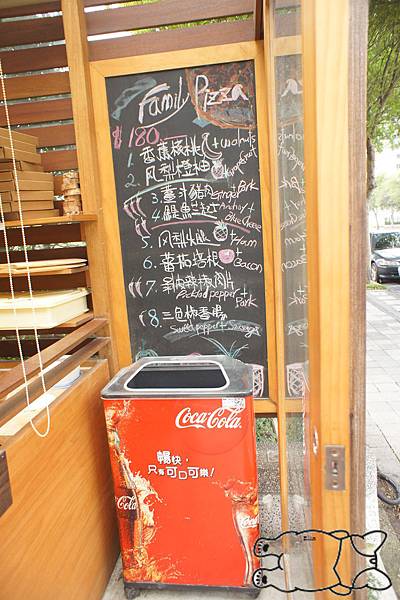 Family Pizza
180
1. 香蕉核桃 + walnuts
2. 鳳梨橙柚
3. 薑汁豬肉 Ginger + Pork
4. 鯷魚起士 Anchovy + Blue Cheese
5. 鳳梨火腿 + Ham
6. 蕃茄培根 + Bacon
7. 辣椒肉片 Pickled pepper + Pork
8. 三色椒香腸
Sweet pepper + Sausage
Coca-Cola
暢快，
只有可口可樂！
Coca-Cola
Coca-Cola